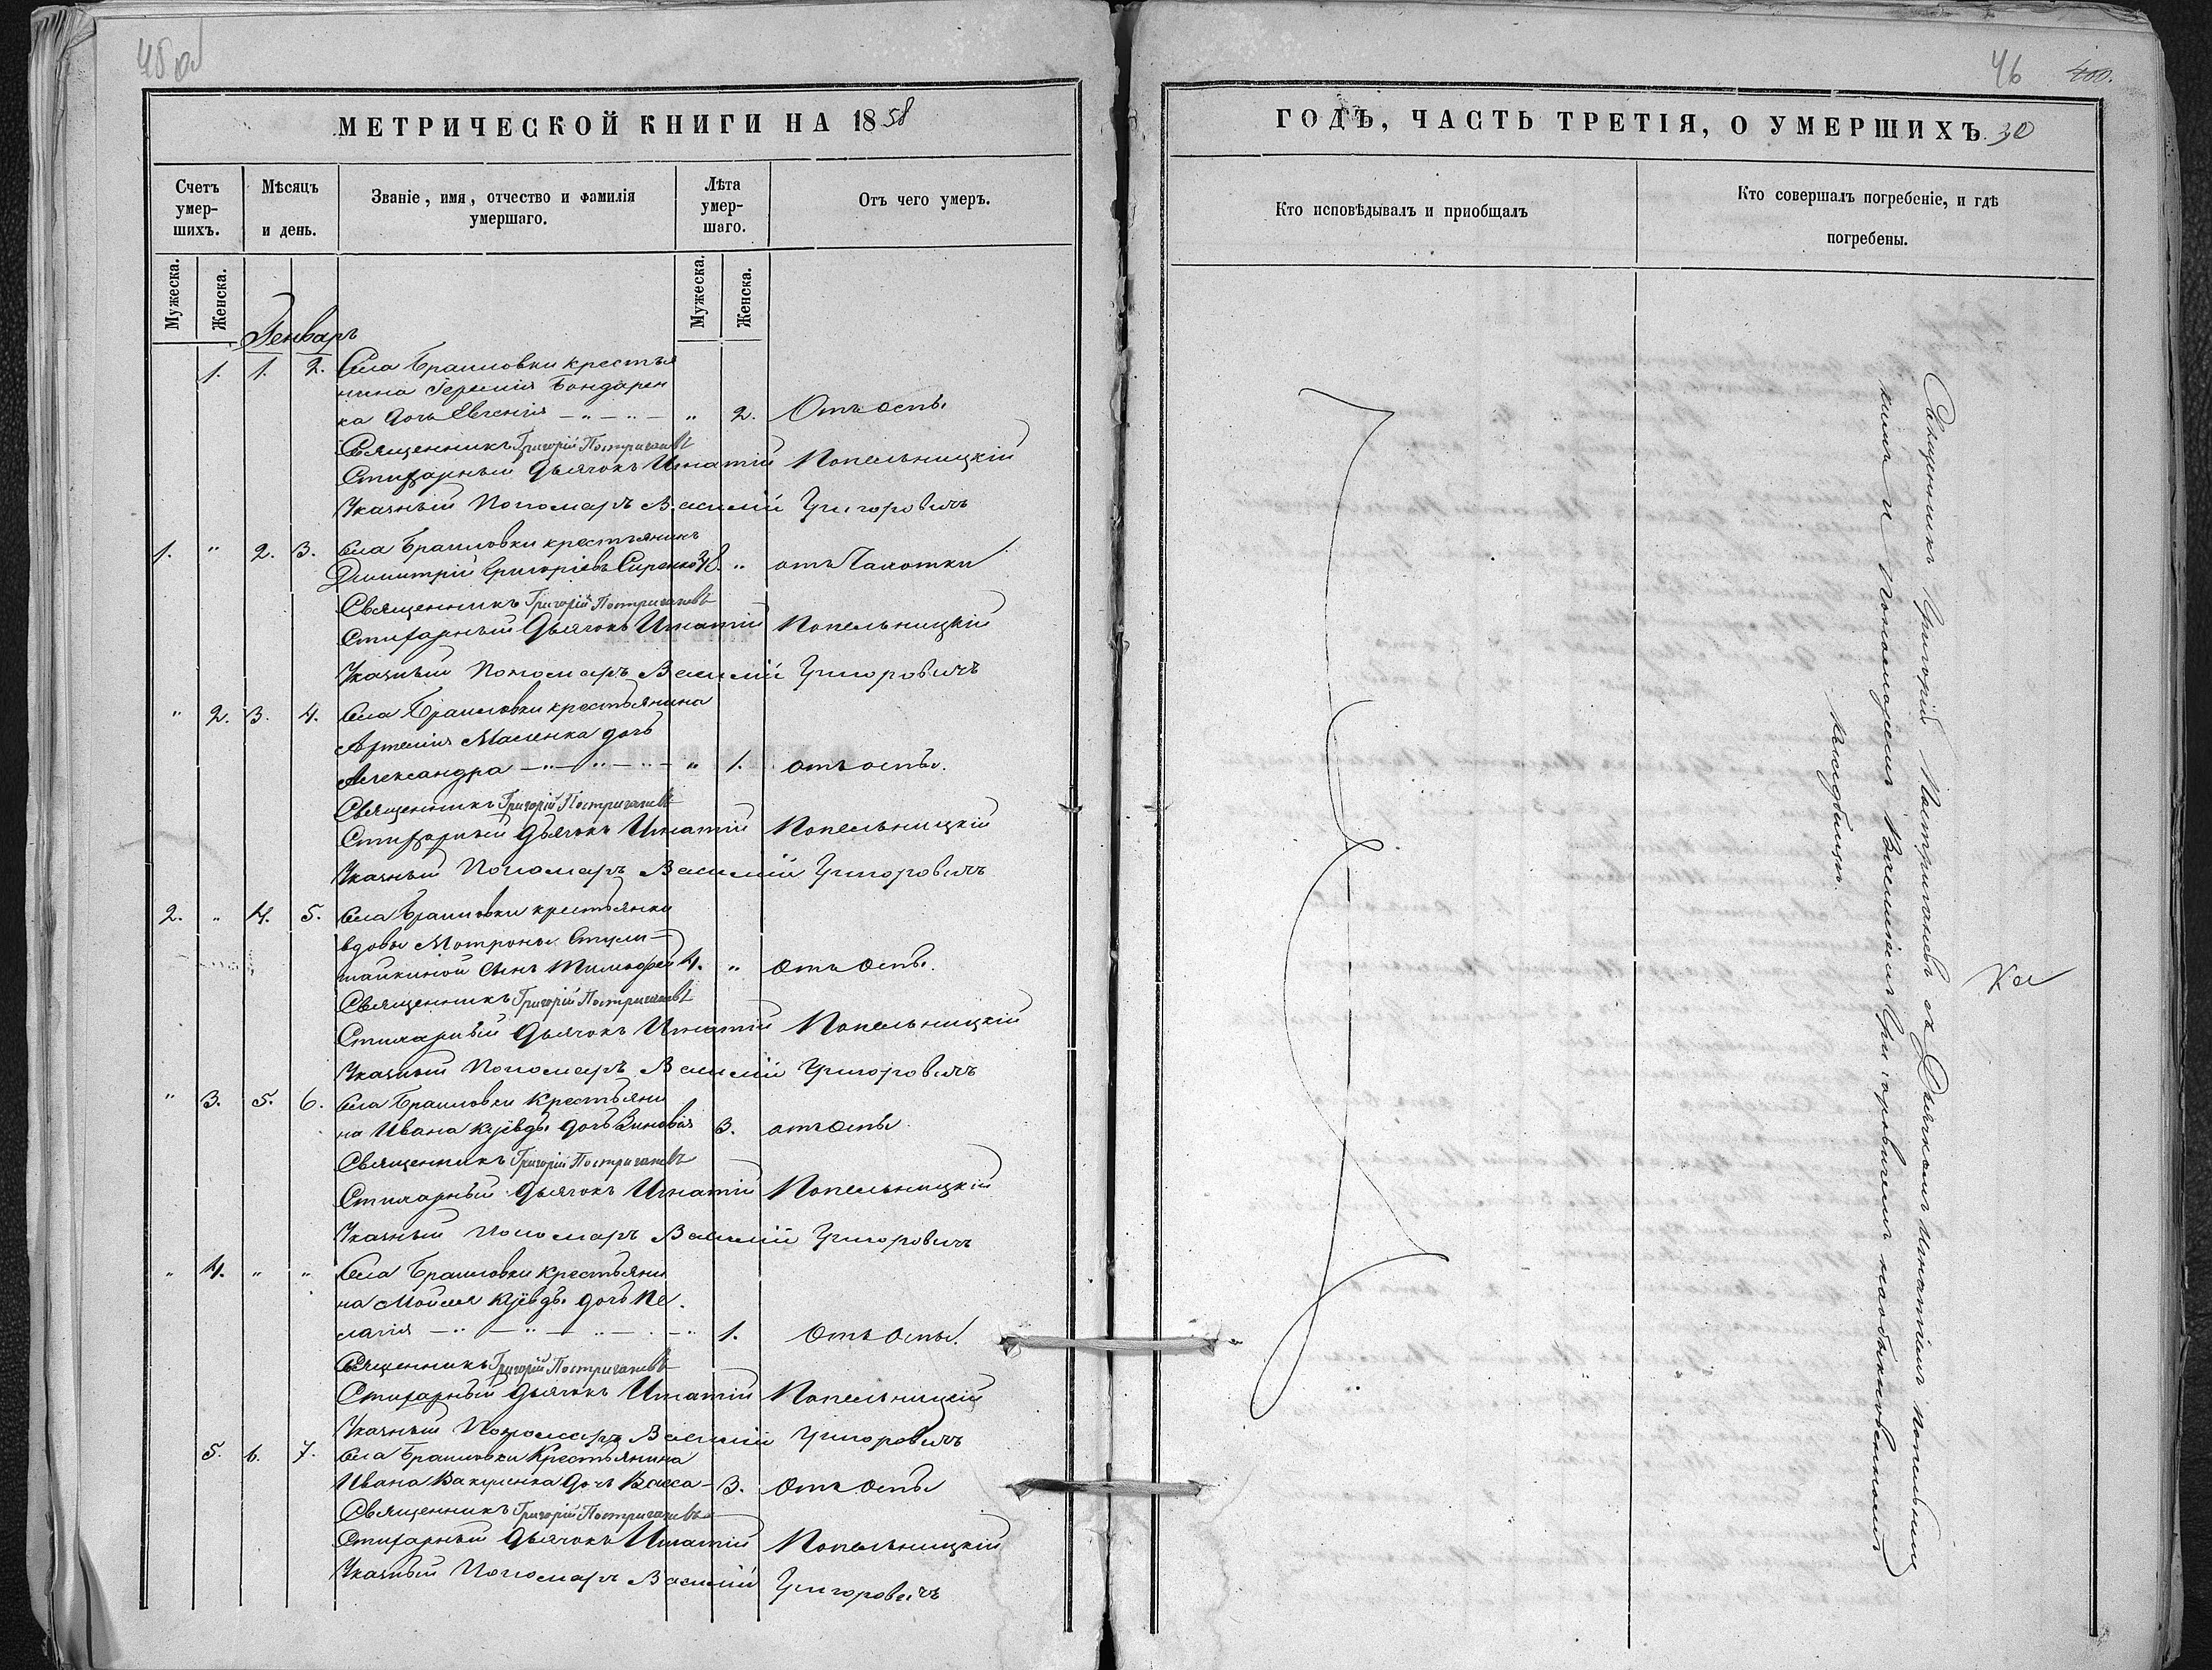 45 об
МЕТРИЧЕСКОЙ КНИГИ НА 1858
Счетъ умер-шихъ.
Мѣсяцъ и день.
Званіе, имя, отчество и фамилія умершаго.
Лѣта умер-шаго.
Отъ чего умеръ.
Мужеска. Женска.
Мужеска. Женска.
Генварь
1. 1. 2. Села Браиловки крестья
нина Іереміи Бондарен
ка дочь Евгенія — „ — „ — „ 2. Отъ оспы
Священникъ Григорій Постригачевъ
Стихарный Дьячокъ Игнатій Копельницкій
Указный Пономарь Василій Григоровичъ
1. „ 2. 3. Села Браиловки крестьянинъ
Димитрій Григоріевъ Сиренко 38. „ отъ Чахотки
Священникъ Григорій Постригачевъ
Стихарный Дьячокъ Игнатій Копельницкій
Указный Пономарь Василій Григоровичъ
„ 2. 3. 4. Села Браиловки крестьянина
Артемія Масенка дочь
Александра — „ — „ — „ — „ 1. отъ оспы.
Священникъ Григорій Постригачевъ
Стихарный Дьячокъ Игнатій Копельницкій
Указный Пономарь Василій Григоровичъ
2. „ 4. 5. Села Браиловки крестьянки
вдовы Мотроны
сынъ Тимофей 4. „ Отъ Оспы.
Священникъ Григорій Постригачевъ
Стихарный Дьячокъ Игнатій Копельницкій
Указный Пономарь Василій Григоровичъ
„ 3. 5. 6. Села Браиловки Крестьяни
на Ивана Куевды дочь Зиновія 3. отъ Оспы
Священникъ Григорій Постригачевъ
Стихарный Дьячокъ Игнатій Копельницкій
Указный Пономарь Василій Григоровичъ
„ 4. „ „ Села Браиловки Крестьяни
на Мойсея Куевды дочь Пе
лагія — „ — „ — „ — „ 1. Отъ Оспы.
Священникъ Григорій Постригачевъ
Стихарный Дьячокъ Игнатій Копельницкій
Указный Пономарь Василій Григоровичъ
5. 6. 7. Села Браиловки Крестьянина
Ивана Вакуленка дочь Васса — 3. Отъ Оспы
Священникъ Григорій Постригачевъ
Стихарный Дьячокъ Игнатій Копельницкій
Указный Пономарь Василій Григоровичъ
46 400.
ГОДЪ, ЧАСТЬ ТРЕТІЯ, О УМЕРШИХЪ. 30
Кто исповѣдывалъ и приобщалъ
Кто совершалъ погребеніе, и гдѣ погребены.
Священникъ Григорій Постригачевъ съ Дьячкомъ Игнатіемъ Копельниц
кимъ и Пономаремъ Василіемъ Григоровичемъ на обыкновенномъ
кладбищѣ.